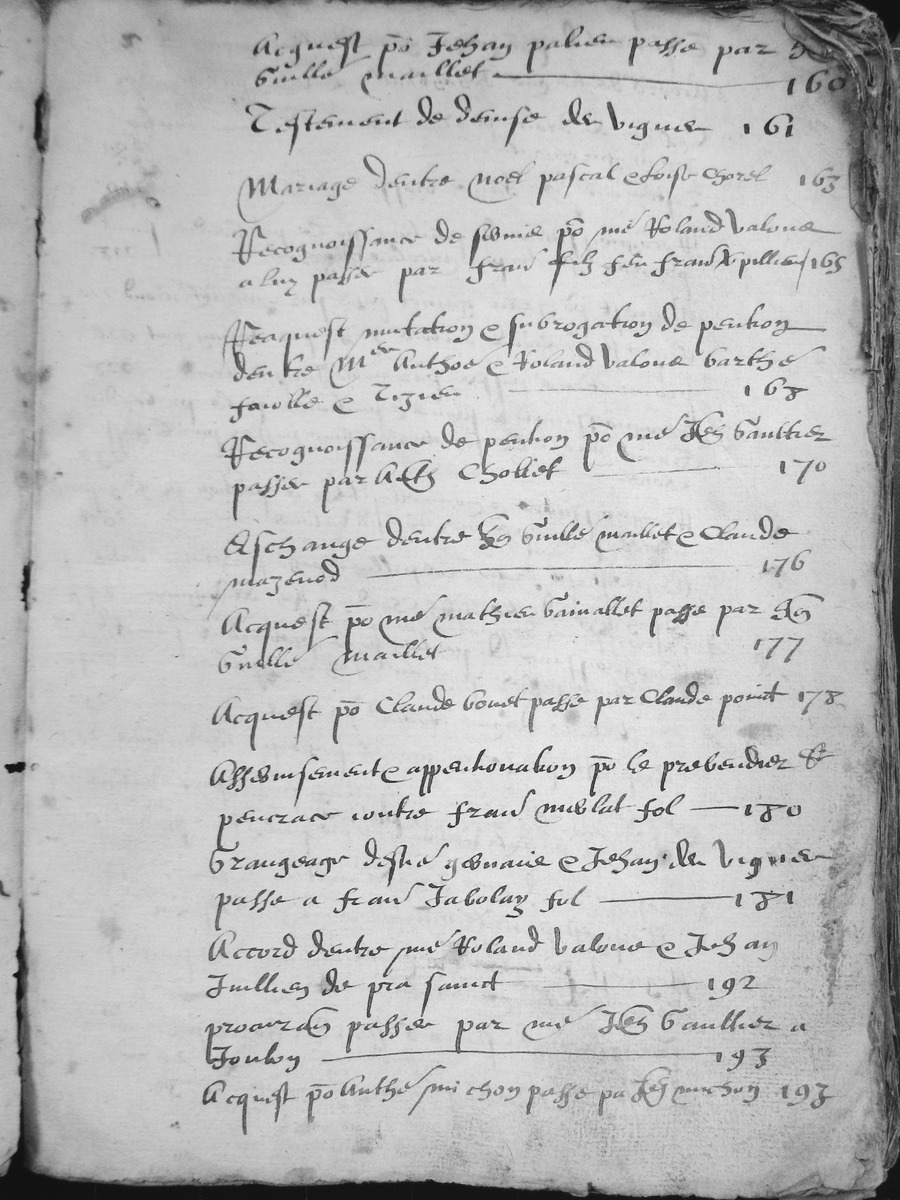 Acquest po Jehan palier passe par
Guille maillet 160
Testement de denise de vignes 161
Mariage dentre noel pascal & loise Chorel 163
Recognoissance de servie po me Roland valous
a luy passee par fran filz feu fran pillier 165
Reaquest mutation & subrogation de pention
dentre Mes Anthoe & Roland valous barthe
faiolle & Tizier 168
Recognoissance de pention po me Jehan Gaultier
passee par Anth Chollet 170
Eschange dentre Guille maillet & Claude
mazenod 176
Acquest po me mathieu Gaivallet passe par
Guille maillet 177
Acquest po Claude bonet passe par Claude point 178
Asservisement & appentionation po le prebendier St
pencrace contre fran mellat fol 180
Grangeage & Jehan de vignes
passe a fran Jabolay fol 181
Accord dentre me Roland valous & Jehan
Jullien de pra sainct 192
procuran passee par me Jehan Gaultier a
Joulon 193
Acquest po Anthe michon passe pa michon 193